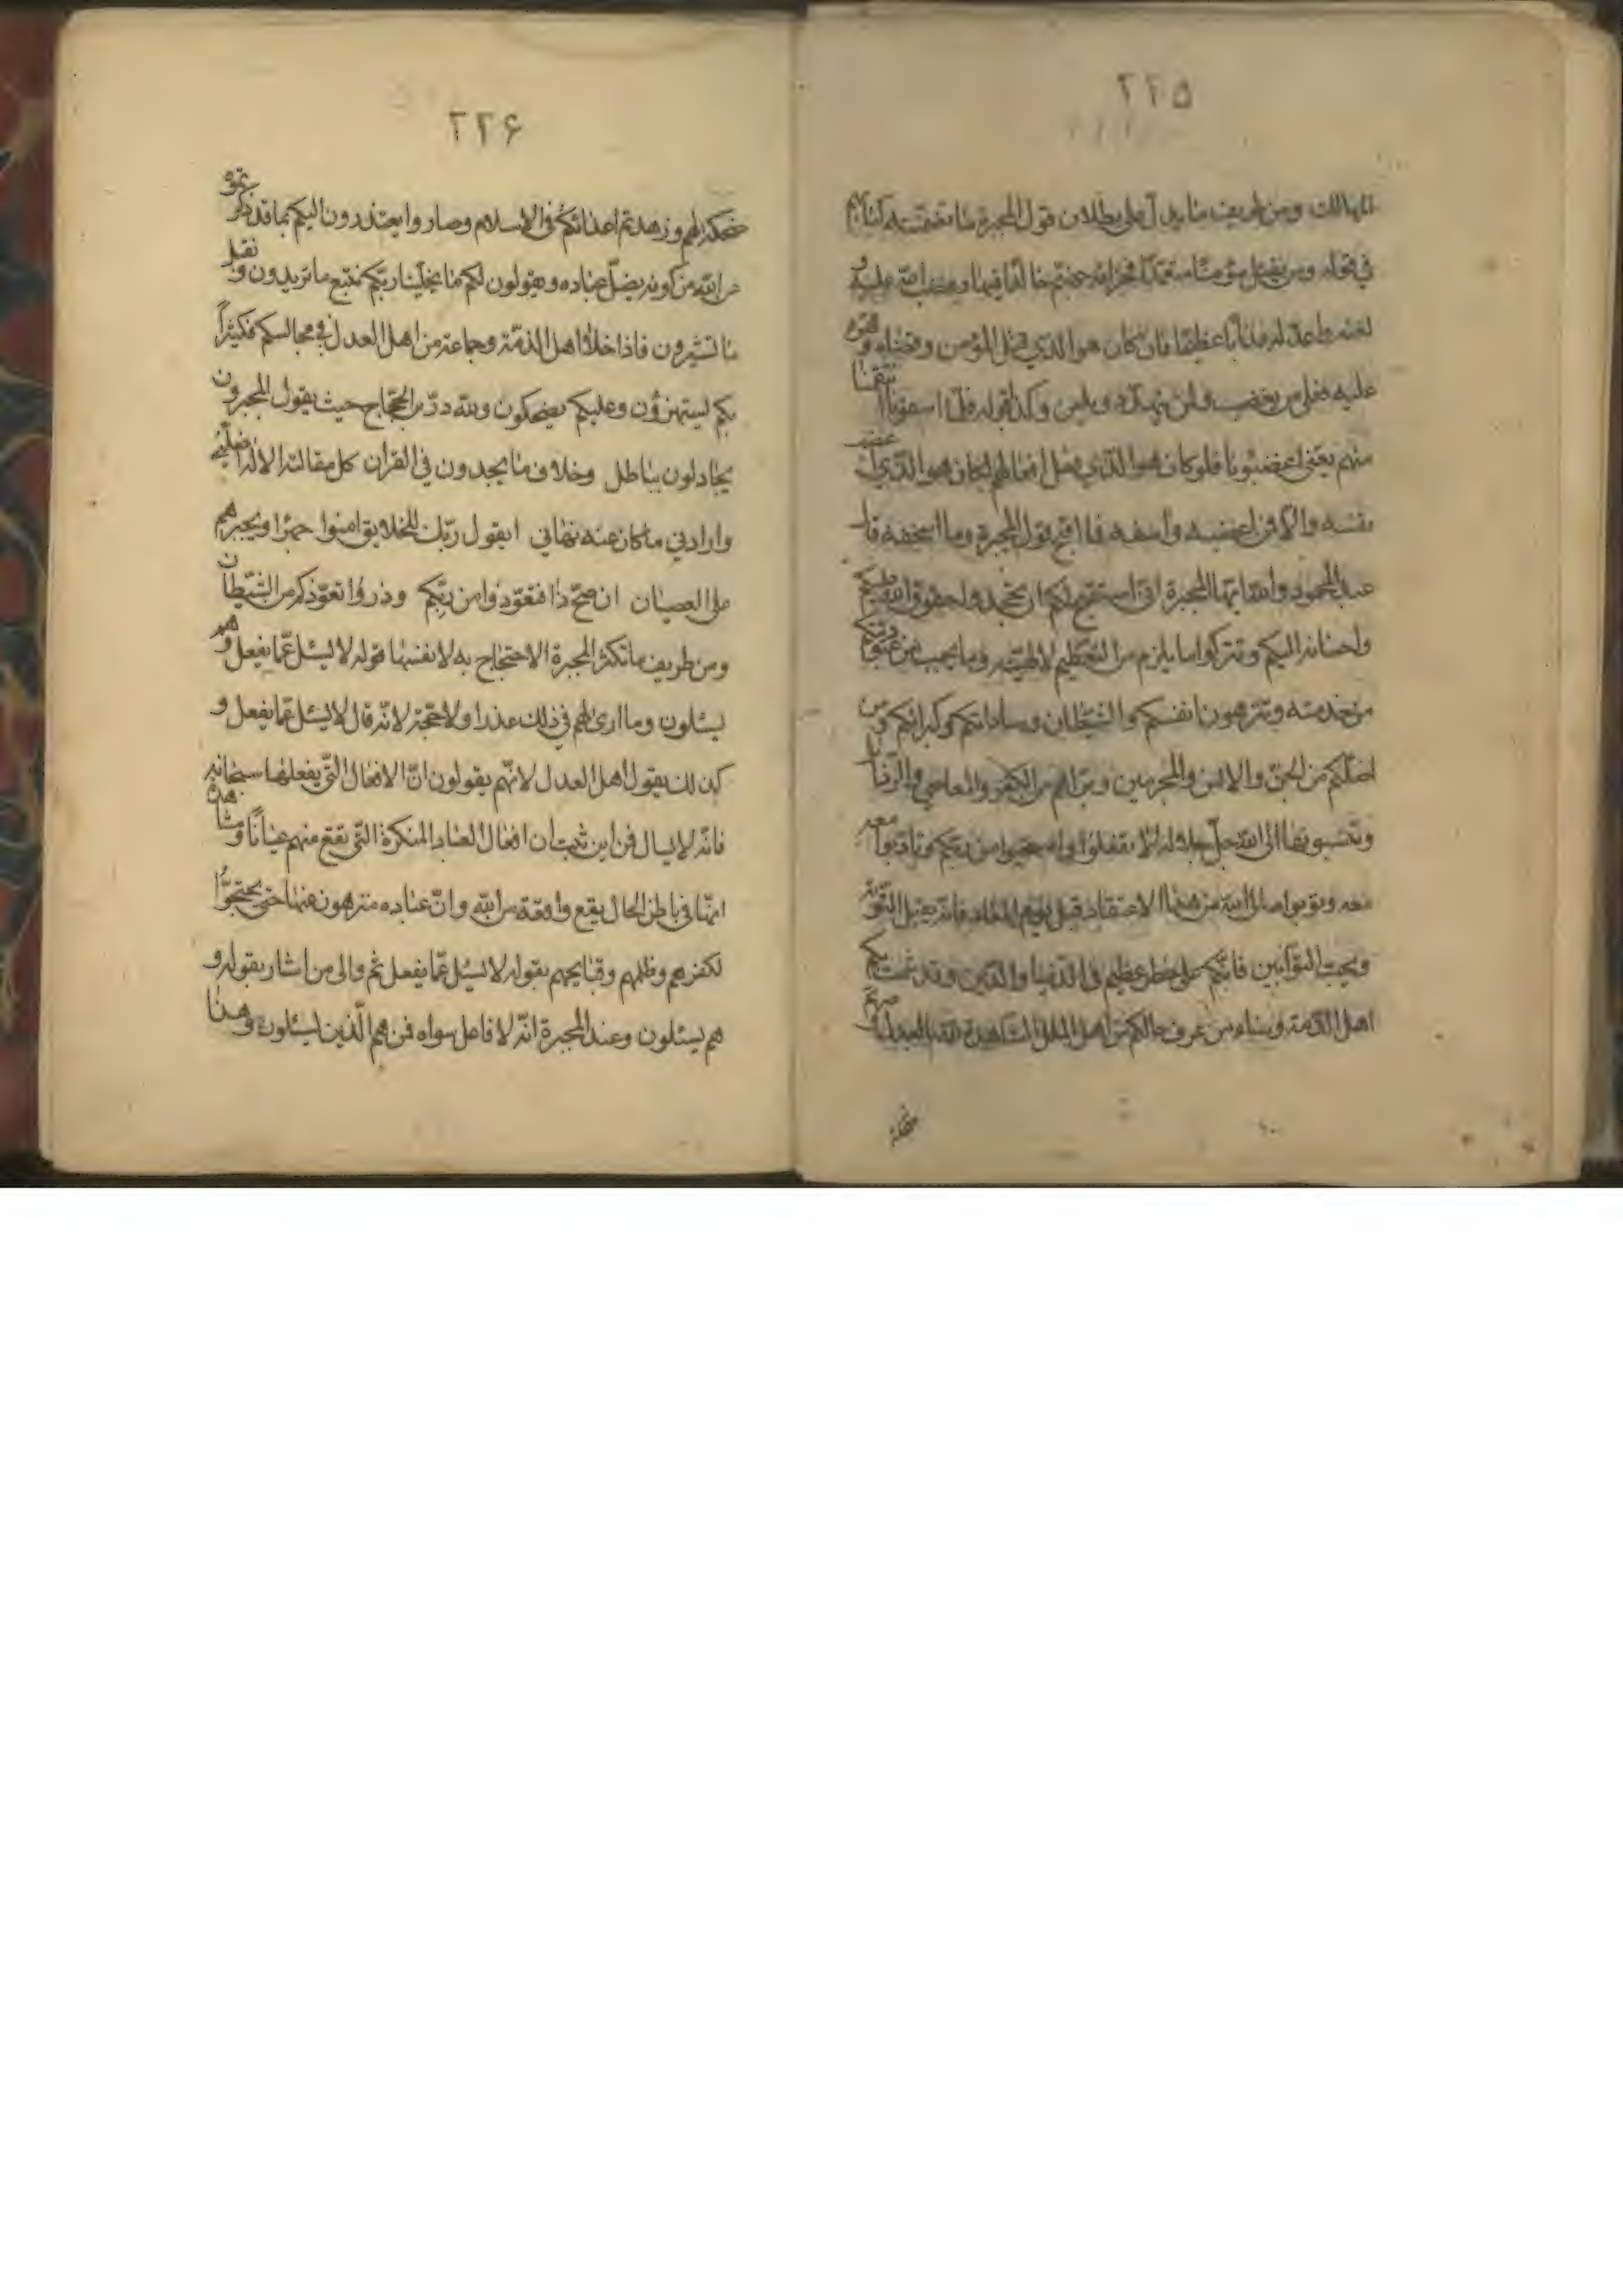 ٢٢٥
المهالك ومن طريف ما يدل على بطلان قول المجبرة ما تضمنته كتابهم
في قوله ومن يقتل مؤمنا متعمدا فجزاؤه جهنم خالدا فيها وغضب الله عليه و
لعنه واعد له عذابا عظيما فان كان هو الذي قتل المؤمن وقضاه وقهره
عليه فعلى من يغضب ولمن يتهدد ويلعن وكذا قوله فلما اسفونا انتقمنا
منهم يعني اغضبونا فلو كان هو الذي فعل افعالهم لكان هو الذي اغضب
نفسه والا فمن اغضبه واسفه فما اقبح قول المجبرة وما اسخفه قال
عبد المحمود والله ايها المجبرة انى استقبح لكم ان تجحدوا حقوق الله عليكم
واحسانه اليكم وتتركوا ما يلزم من التعظيم لالهيته وما يجب من عبوديتكم
من خدمته وتنزهون انفسكم والشيطان وساداتكم وكبرائكم ومن
اضلكم من الجن والانس والمجرمين وتبراهم من الكفر والمعاصي والزنايا
وتنسبونها الى الله جل جلاله لا تفعلوا واستحيوا من ربكم وتادبوا معه
معه وتوبوا الى الله من هذا الاعتقاد قبل يوم المعاد فانه يقبل التوبة
ويحب التوابين فانكم على خطر عظيم في الدنيا والدين وقد شمت بكم
اهل الذمة ومن عرف حالكم من اهل الملل لقد صرتم
ضحكة
٢٢۶
ضحكة لهم وزهدتم اعدائكم في الاسلام وصاروا يعتذرون اليكم بما قد ذكرتموه
عن الله من كونه يضل عباده ويقولون لكم ما يخلينا ربكم نتبع ما تريدون ونقبل
ما تشيرون فاذا خلا اهل الذمة وجماعة من اهل العدل في مجالسكم فكثيرا
بكم يستهزؤن وعليكم يضحكون ولله در بن الحجاج حيث يقول المجبرون
يجادلون بباطل وخلاف ما يجدون في القران كل مقالته الاله اضلني
وارادني ما كان عنه نهاني ايقول ربك للخلايق امنوا جهرا ويجبرهم
على العصيان ان صح ذا فتعوذوا من ربكم وذروا تعوذكم من الشيطان
ومن طريف ما تكثر المجبرة الاحتجاج به لانفسها قوله لا يسئل عما يفعل وهم
يسئلون وما ارى لهم في ذلك عذرا ولا حجة لانه قال لا يسئل عما يفعل و
كذلك يقول اهل العدل لانهم يقولون ان الافعال التي يفعلها سبحانه
فانه لا يسال فمن اين ثبت ان افعال العباد المنكرة التي تقع منهم عيانا ومشاهدة
انها في باطن الحال يقع واقعة من الله وان عباده منزهون عنها حتى يحتجوا
لكفرهم وظلمهم وقبايحهم بقوله لا يسئل عما يفعل ثم والى من اشار بقوله و
هم يسئلون وعند المجبرة انه لا فاعل سواه فمن هم الذين يسئلون وهذا